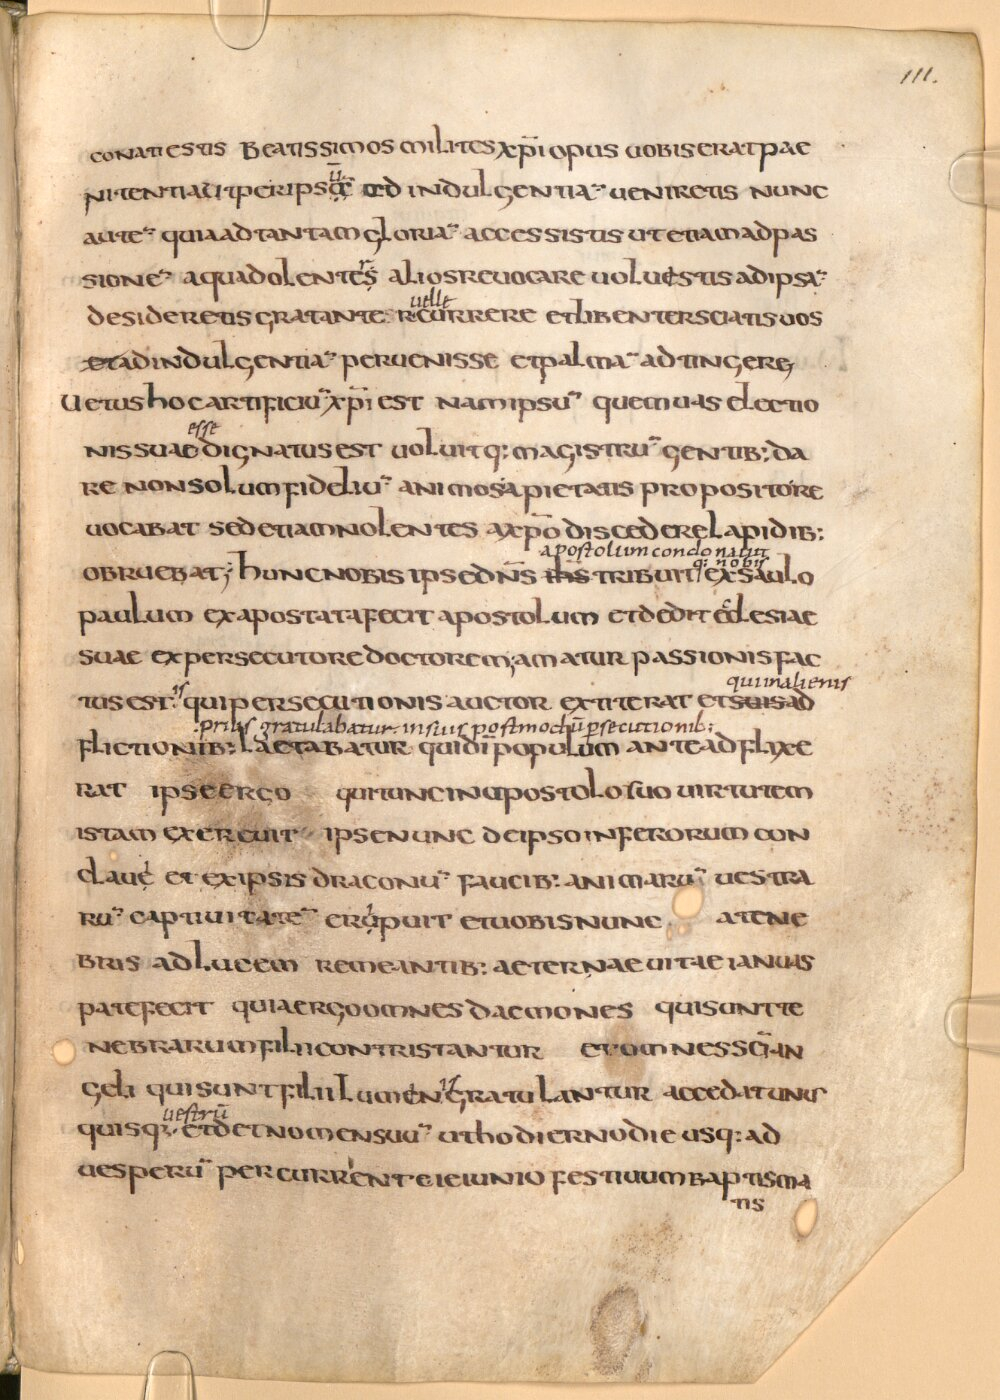 111.
conati estis Beatissimos milites xp̄i opus uobis erat pae
nitentia ut per ipsū ad indulgentia᷄ ueniretis nunc
aute᷄ quia ad tantam gloria᷄ accessistis ut etiam ad pas
sione᷄ a qua dolentes alios reuocare uoluistis ad ipsa᷄
desideretis gratanter currere et libenter sciatis uos
uelle
et ad indulgentia᷄ peruenisse et palma᷄ adtingere
Uetus hoc artificiu᷄ xp̄i est nam ipsu᷄ quem uas electio
esse
nis suae dignatus est uoluitq: magistru᷄ gentib: da
re non solum fideliu᷄ animos a pietatis proposito re
uocabat sed etiam nolentes a xp̄o discedere lapidib:
apostolum condonauit
obruebat; hunc nobis ipse dn̄s ih̄s tribuit ex saulo
q: nobis
paulum ex apostata fecit apostolum et dedit eclesiae
suae ex persecutore doctorem; amatur passionis fac
qui in alienis
tus est. is qui persecutionis auctor extiterat et suis ad
prius gratulabatur in suis postmodū p̄secutionib;
flictionib: laetabatur qui dī populum ante adflixe
rat ipse ergo qui tunc in apostolo suo uirtutem
istam exercuit ipse nunc de ipso inferorum con
claue et ex ipsis draconu᷄ faucib: animaru᷄ uestra
ru᷄ captiuitate᷄ eripuit et uobis nunc a tene
bris ad lucem remeantib: aeternae uitae ianuas
patefecit quia ergo omnes daemones qui sunt te
nebrarum filii contristantur et omnes sc̄i an
geli qui sunt filii luminis gratulantur accedat unus
uestrū
quisq; et det nomen suu᷄ ut hodierno die usq: ad
uesperu᷄ percurrente ieiunio festiuum baptisma
tis